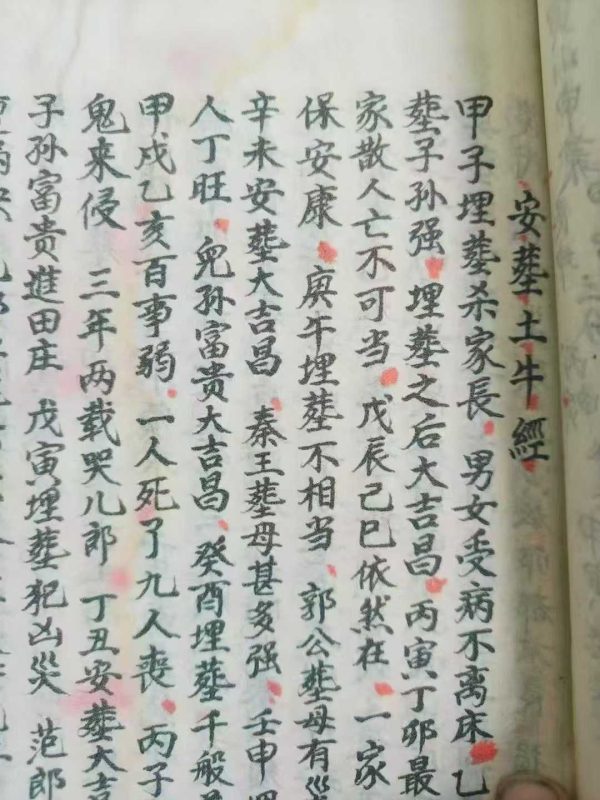 安塟土牛經
甲子埋塟杀家長.男女受病不离床.乙
塟子孙强.埋塟之后大吉昌.丙寅丁卯最
家散人亡不可当.戊辰己巳依然在.一家
保安康.庚午埋塟不相当.郭公塟母有
辛未安塟大吉昌.秦王塟母甚多强.壬申
人丁旺.兒孙富贵大吉昌.癸酉埋塟千般
甲戍乙亥百事弱.一人死了九人丧.丙子
鬼来侵 三年两载哭儿郎 丁丑安塟大吉
子孙富贵進田庄 戊寅埋塟犯凶災 范郎